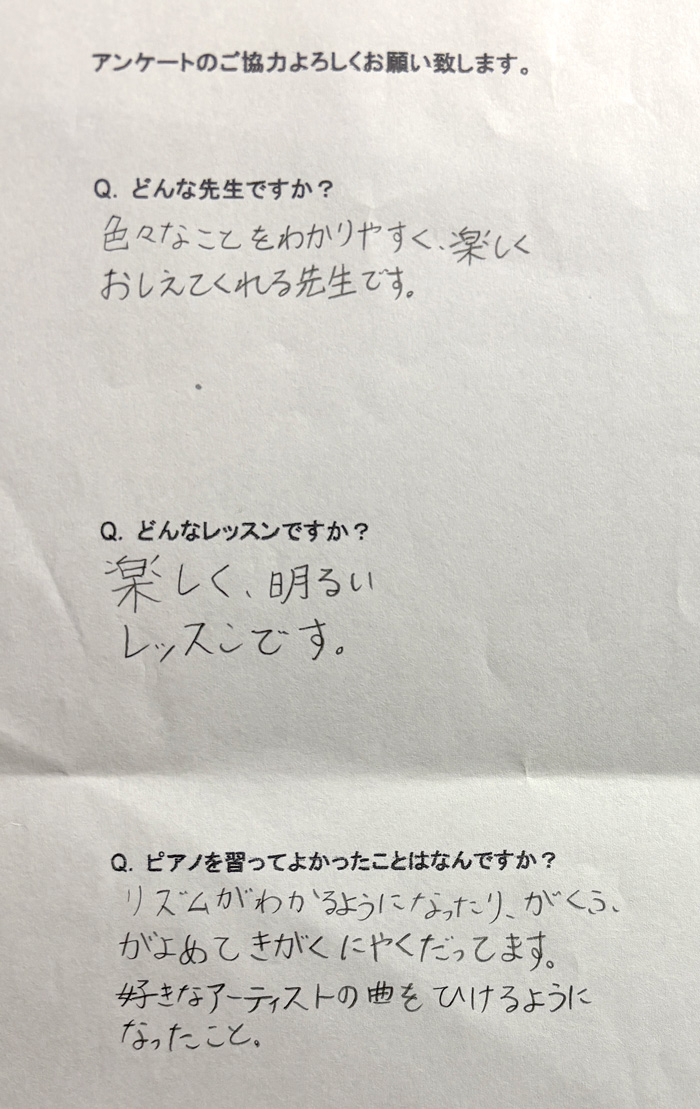 アンケートのご協力よろしくお願い致します。
Q. どんな先生ですか?
色々なことをわかりやすく、楽しく
おしえてくれる先生です。
Q. どんなレッスンですか?
楽しく、明るい
レッスンです。
Q. ピアノを習ってよかったことはなんですか?
リズムがわかるようになったり、がくふ、
がよめて きがく にやくだってます。
好きなアーティストの曲を ひけるように
なったこと。